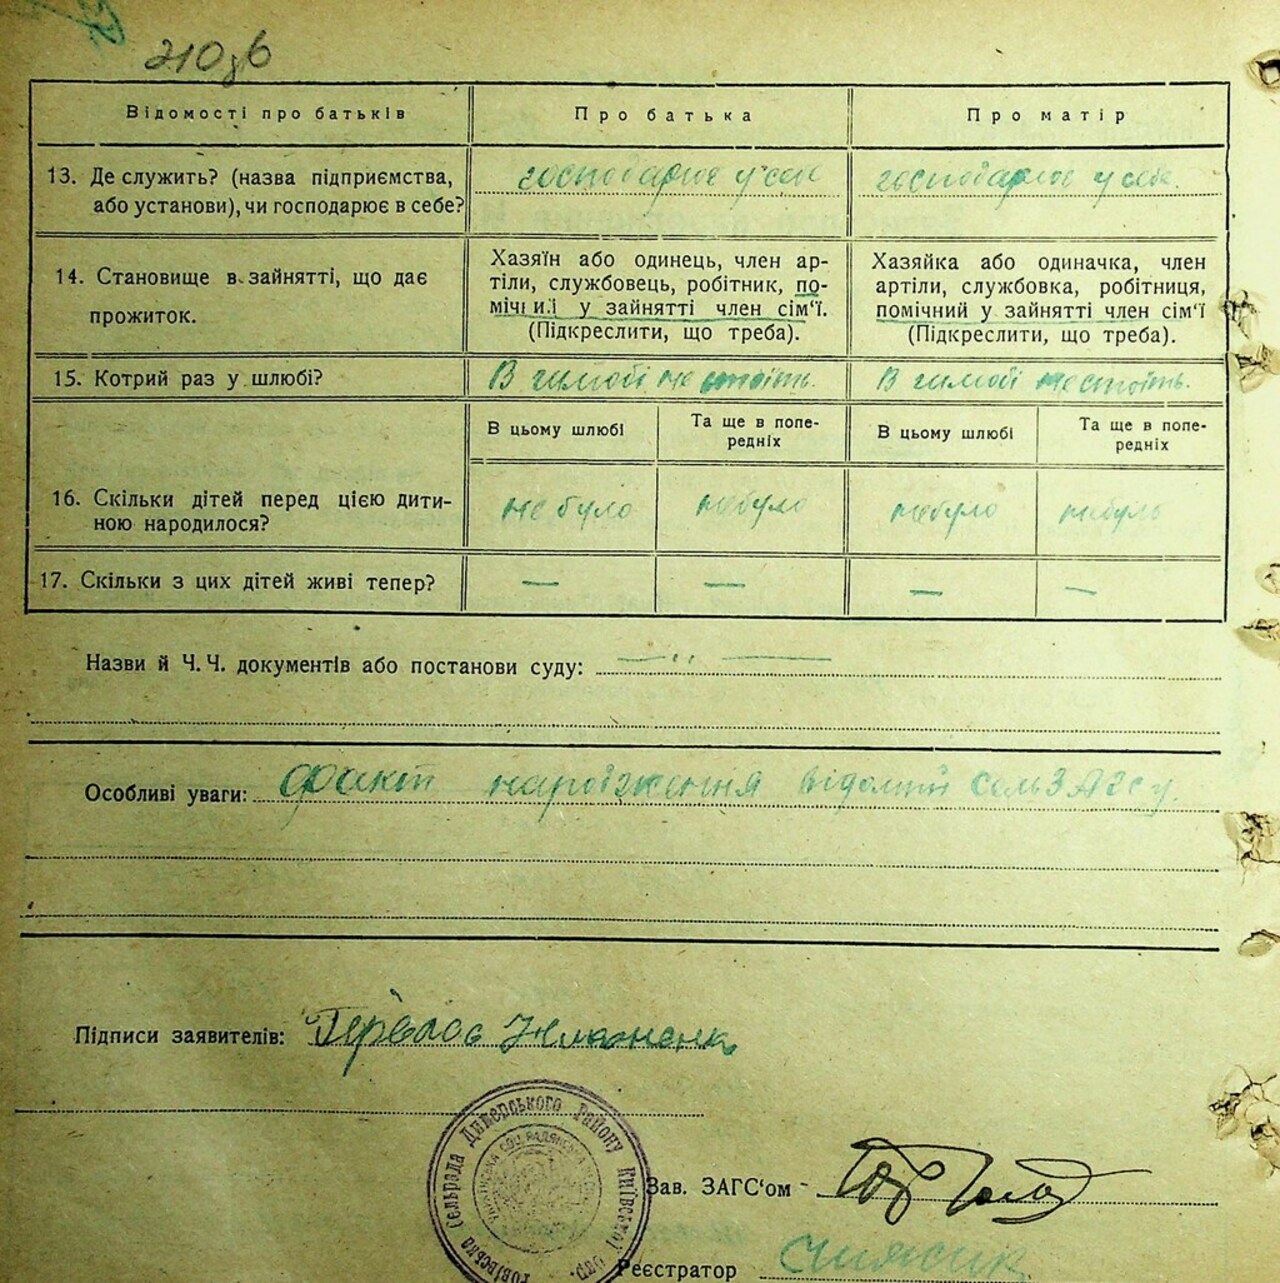 210зв
Відомості про батьків
Про батька
Про матір
13. Де служить? (назва підприємства,
або установи), чи господарює в себе?
господарює у себе
господарює у себе.
14. Становище в зайнятті, що дає
прожиток.
Хазяїн або одинець, член ар-
тіли, службовець, робітник, по-
мічний у зайнятті член сім'ї.
(Підкреслити, що треба).
Хазяйка або одиначка, член
артіли, службовка, робітниця,
помічний у зайнятті член сім'ї
(Підкреслити, що треба).
15. Котрий раз у шлюбі?
В шлюбі не стоїть.
В шлюбі не стоїть.
В цьому шлюбі
Та ще в попе-
редніх
В цьому шлюбі
Та ще в попе-
редніх
16. Скільки дітей перед цією дити-
ною народилося?
не було
небуло
небуло
небуло
17. Скільки з цих дітей живі тепер?
— — — —
Назви й Ч. Ч. документів або постанови суду: — " —
Особливі уваги: Факт народження відомий сельЗАГСу.
Підписи заявителів:
сельрада Димерського Району Київської Окр.
Зав. ЗАГС'ом
Реєстратор